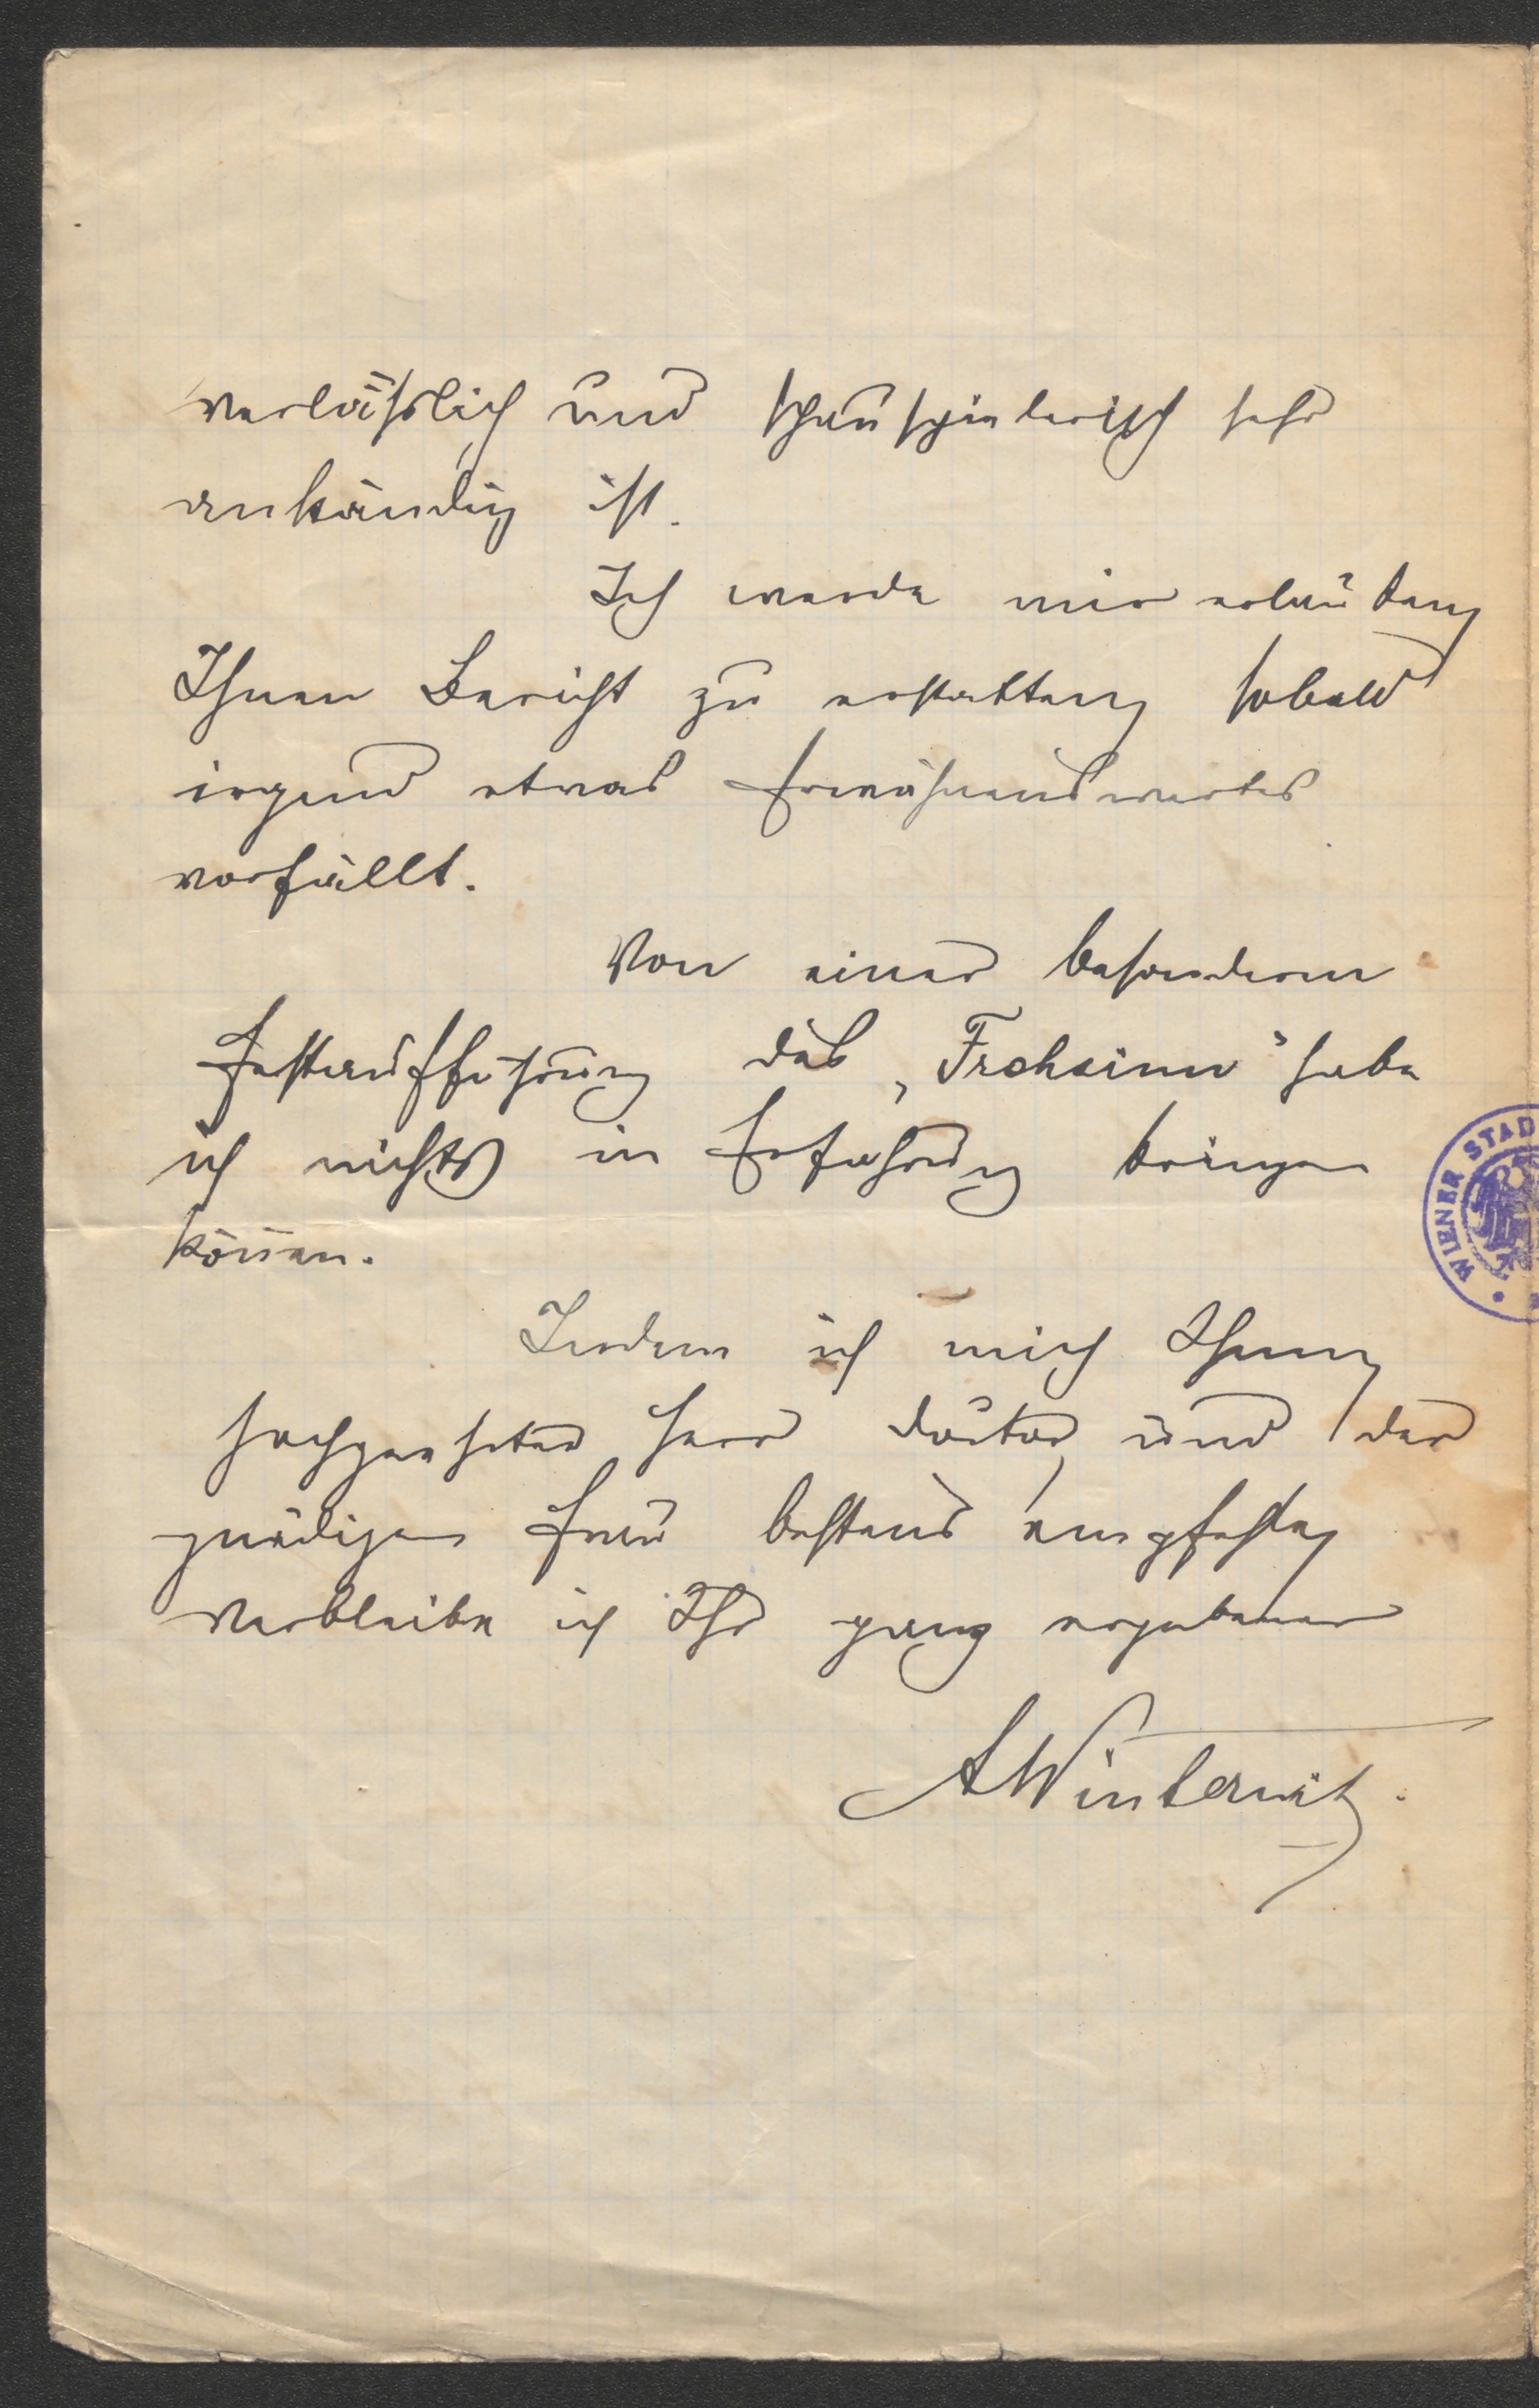 verläßlich und schauspielerisch sehr
anständig ist.
Ich werde mir erlauben
Ihnen Bericht zu erstatten sobald
irgend etwas Erwähnenswertes
vorfällt.
Von einer besonderen
Festaufführung des „Frohsinn“ habe
ich nichts in Erfahrung bringen
können.
Indem ich mich Ihnen
hochgeehrter Herr Doctor, und der
gnädigen Frau bestens empfehle,
verbleibe ich Ihr ganz ergebener
AWinternitz.
WIENER STAD